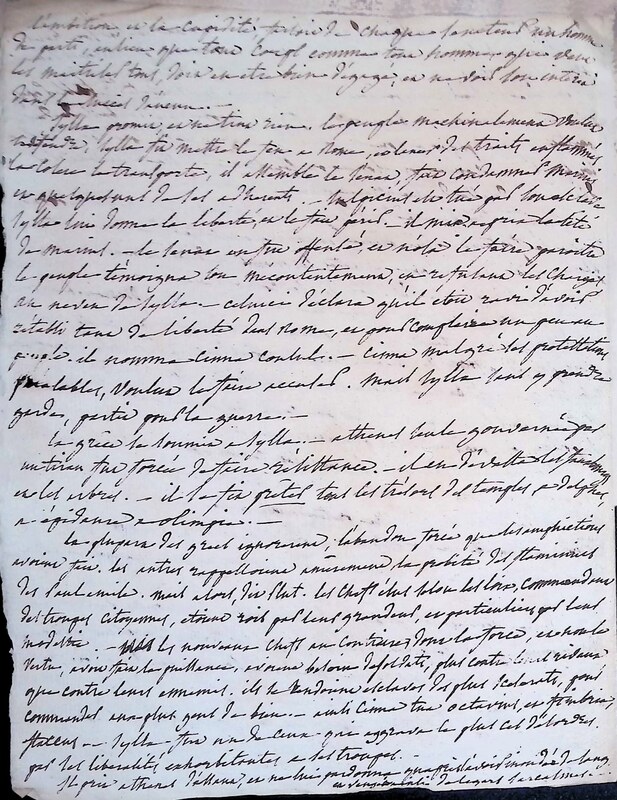 l'ambition et la cupidité, faisoit de chaque senateur un homme
de parti, en lieu que tout corps comme tout homme qui veut
les maitriser tous, doit en etre bien dégagé, et ne voir son interet
dans
Sylla promit, et ne tint rien. le peuple machinalement voulut
Sylla fit mettre le feu a Rome, et lancer des traits enflammés
la colere le transporte, il assemble le senat, fait condamner Marius
et quelques uns de ses adherents. – Sulpicius est tué par son esclave
Sylla lui donne la liberté, et le fait périr. – il mit a prix la tête
de marius. – le senat en fut offensé, et n'osa le faire paroitre
le peuple témoigna son mecontentement, en refusant les charges
au neveu de Sylla. – celui ci déclara qu'il etoit ravi d'avoir
rétabli tant de liberté dans Rome, et pour complaire un peu au
peuple. il nomma Cinna consul. – Cinna malgré ses protestations
préalables, voulut le faire accuser. mais Sylla sans y prendre
garde, partit pour la guerre. –
la grèce se soumit a Sylla. – athenes seule gouvernée par
un tiran fut forcée de faire résistance. – il en dévasta les
et les arbres. – il se fit prêter tous les trésors des temples, a delphes,
a épidaure a olimpie. –
la plupart des grecs ignoroient l'abandon forcé que les amphictions
avoient fait. les autres rappelloient amèrement la probité des flaminius
des Paul emile. mais alors, dit Plut. les chefs élus selon les loix, commandant
des troupes citoyennes, etoient rois par leur grandeur, et particuliers par leur
modestie. – les nouveaux chefs au contraire, dont la force, et non la
vertu, avoit fait la puissance, avoient besoin de soldats, plus contre leurs rivaux
que contre leurs ennemis. ils se rendoient esclaves des plus scelerats, pour
commander aux plus gens de bien. – ainsi Cinna tua octavius, et fimbria,
flaccus. – Sylla fut un de ceux qui aggrava le plus ces désordres.
par ses liberalités exhorbitantes a ses troupes.
Il prit athenes d'assaut, et ne lui pardonna qu'après l'avoir inondée de sang